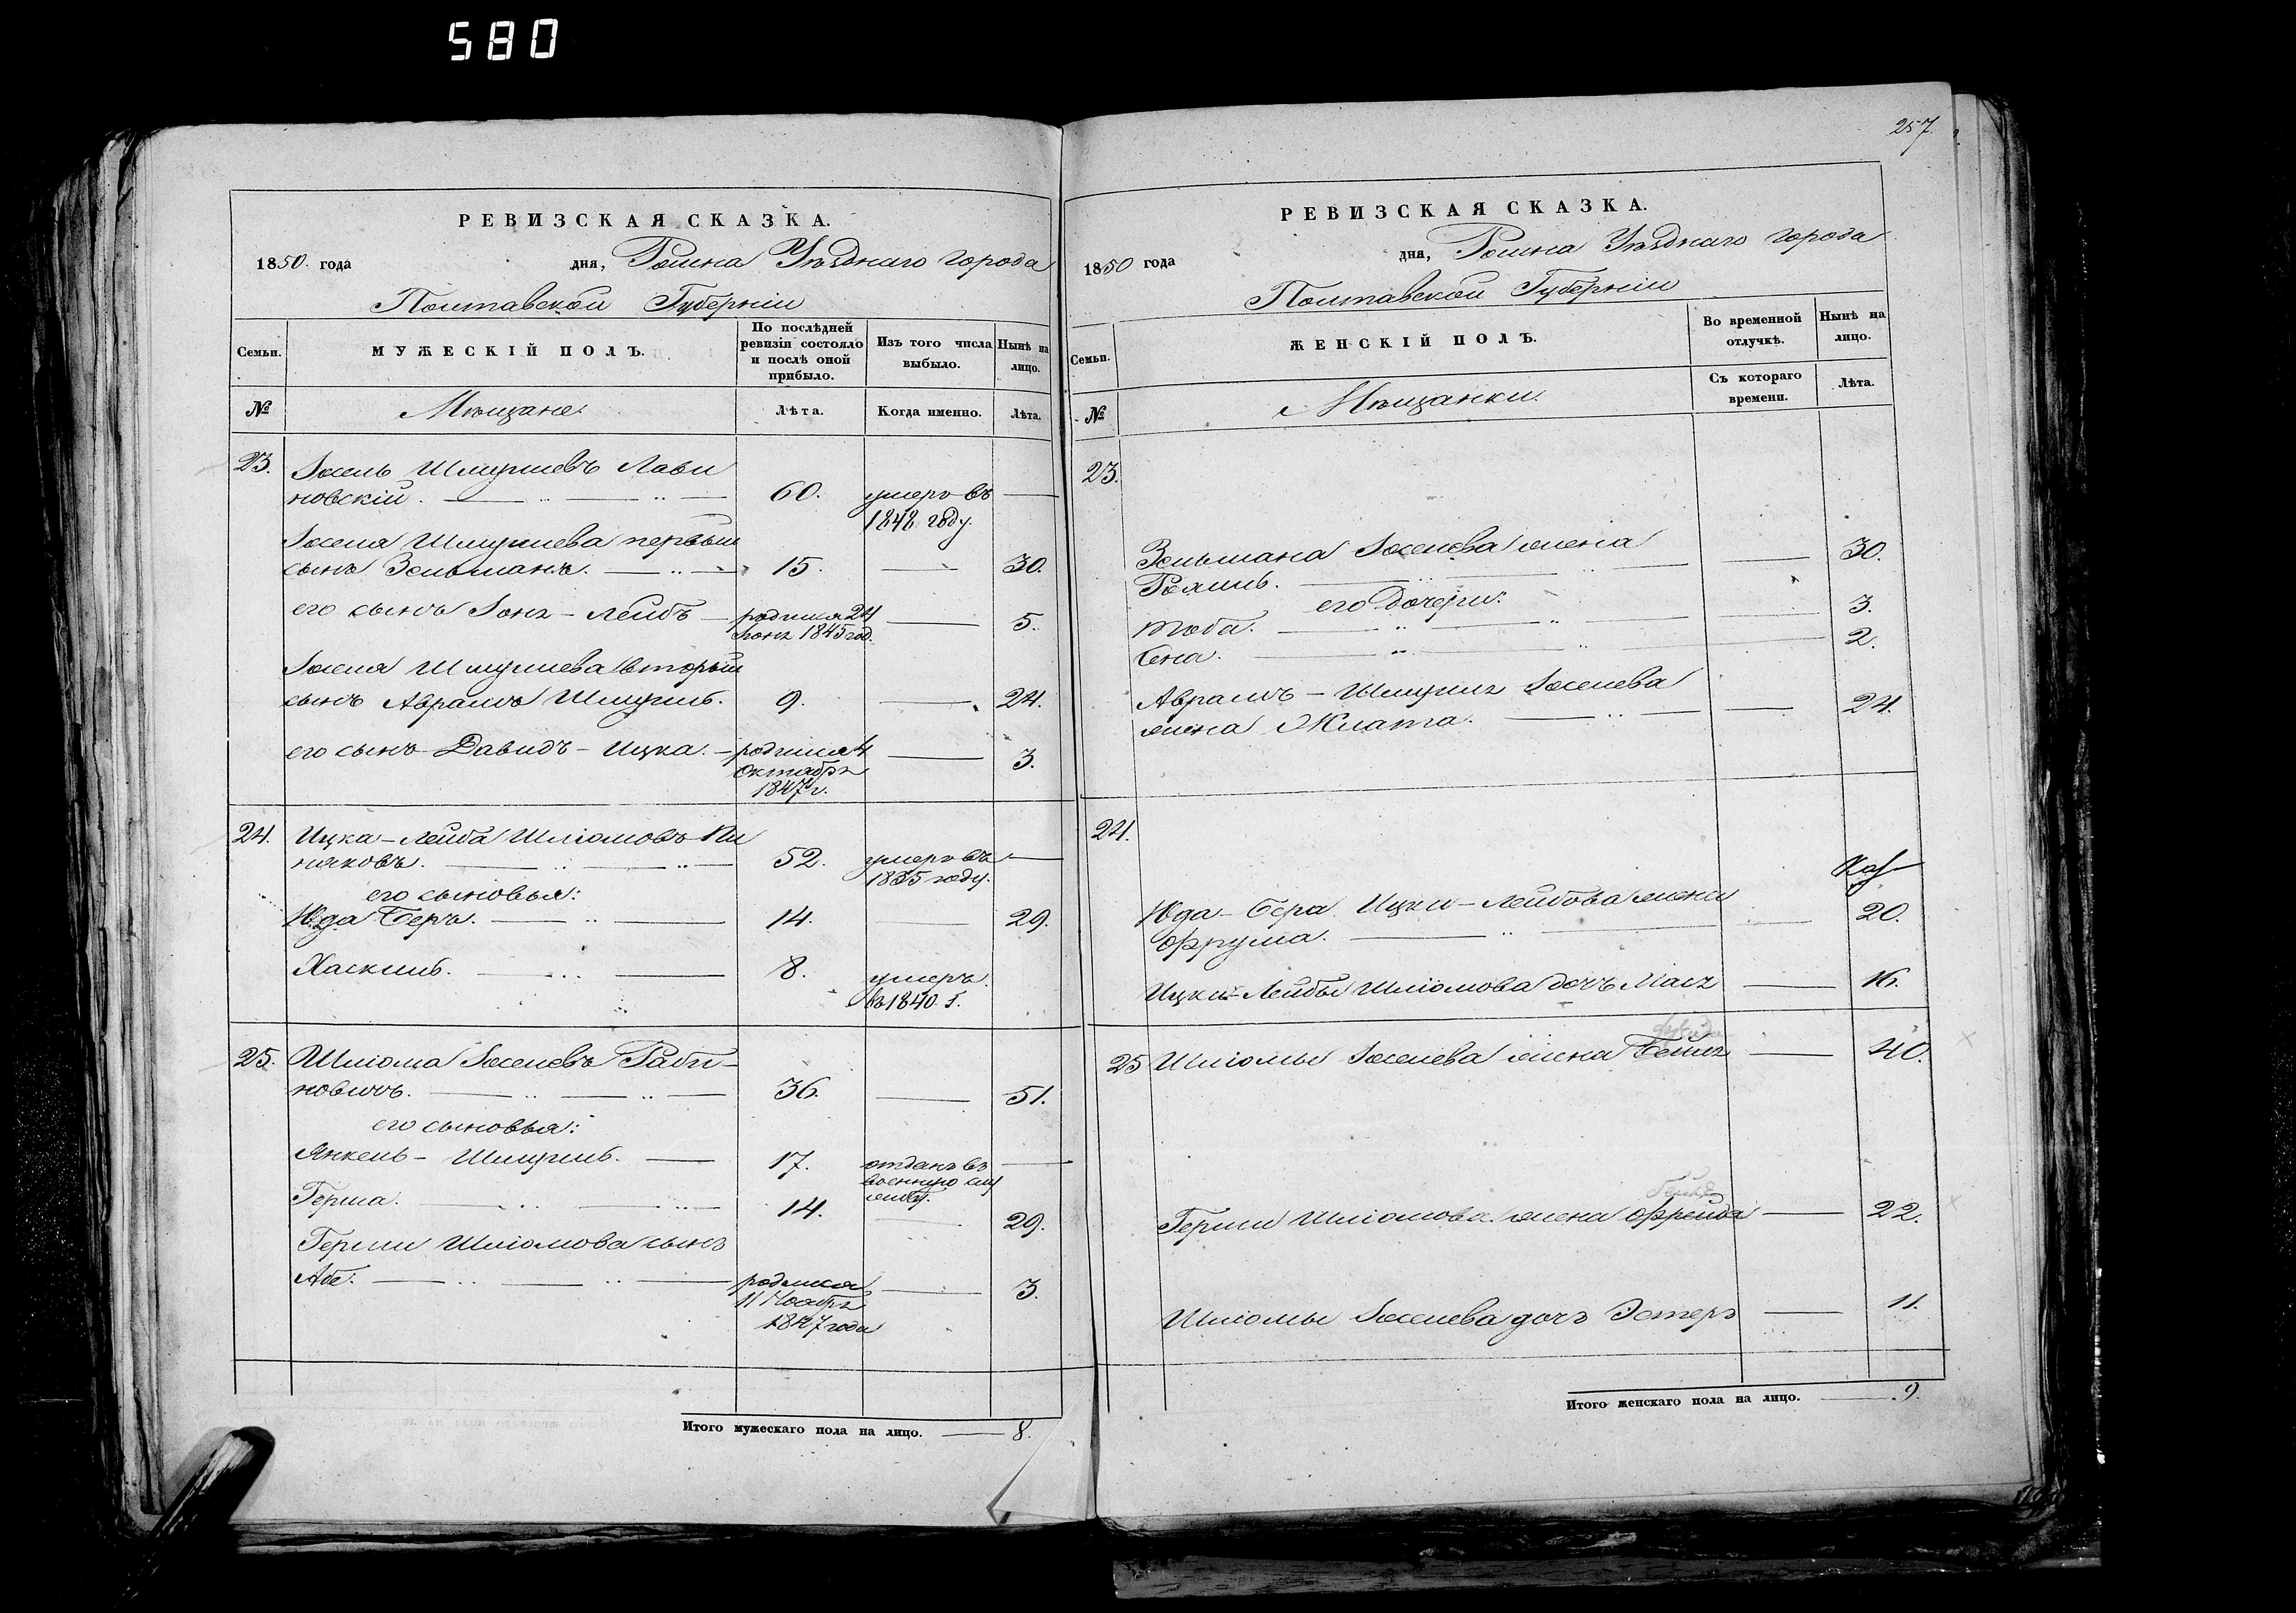 580
РЕВИЗСКАЯ СКАЗКА.
1850. года дня, Ромна Уѣзднаго города
Полтавской Губерніи
Семьи.
МУЖЕСКІЙ ПОЛЪ.
По послѣдней ревизіи состояло и послѣ оной прибыло.
Изъ того числа выбыло.
Нынѣ на лицо.
№ Мѣщане. Лѣта. Когда именно. Лѣта.
23. Іосель Шмуилевъ
новскій. 60. умеръ въ
1848 году.
Іоселя Шмуилева первый
сынъ Зельманъ. 15. 30.
его сынъ Лейбъ родился 24
1845 год. 5.
Іоселя Шмуилева вторый
сынъ Аврамъ Шмуиль. 9. 24.
его сынъ Давидъ-Ицка. родился 4 3.
октября
1847 г.
24. Ицка-Лейба Шліомовъ Пи
няковъ. 52. умеръ въ
1835 году.
его сыновья:
Юда Беръ. 14. 29.
Хаскиль. 8. умеръ
въ 1840 г.
25. Шліома Іоселевъ Раби-
новичъ. 36. 51.
его сыновья:
Янкель- Шмуиль. 17. отданъ въ
военную слу
жбу.
Герша. 14. 29.
Герши Шліомова сынъ
Абе. родился 3.
11 Ноября
1847 года
Итого мужескаго пола на лицо. 8.
257.
РЕВИЗСКАЯ СКАЗКА.
1850 года дня, Ромна Уѣзднаго города
Полтавской Губерніи
Семьи.
ЖЕНСКІЙ ПОЛЪ.
Во временной отлучкѣ.
Нынѣ на лицо.
№ Мѣщанки. Съ котораго времени. Лѣта.
23.
Зельмана Іоселева жена
30.
его дочери:
Тоба. 3.
2.
Аврамъ-Шмуиля Іоселева
жена Злата. 24.
24.
Юда-Бера Ицки-Лейбова жена
Фрума. 20.
Ицки-Лейбы Шліомова дочь 16.
25 Шліомы Іоселева жена Бейля 40.
Герши Шліомова жена Фрейда 22.
Шліомы Іоселева дочь Эстеръ 11.
Итого женскаго пола на лицо. 9.